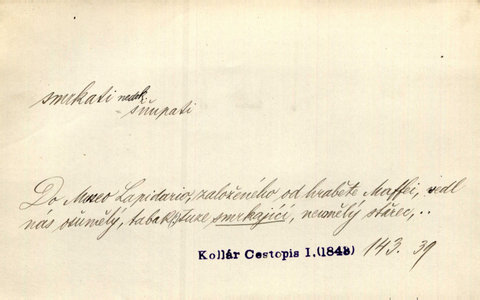 smrkati nedok.
- sňupati
Do Museo Lapidario, založeného od hraběte Maffei, vedl
nás ošumělý, tabak tuze smrkající, neumělý stařec,..
Kollár Cestopis I.(1843) 143. 39